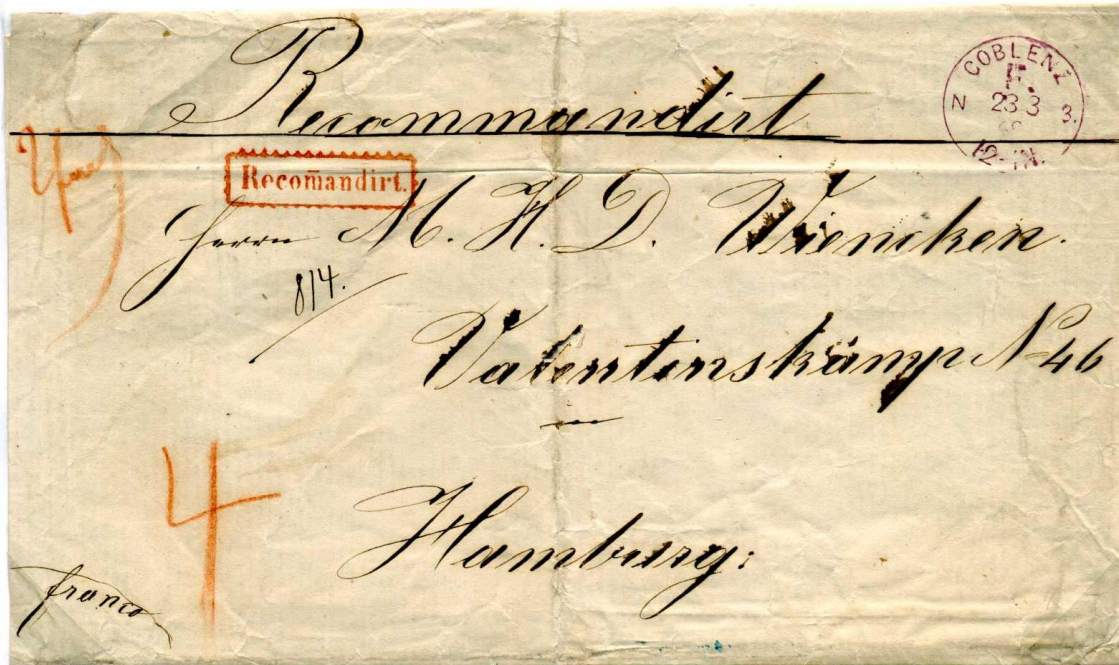 Recommandirt
COBLENZ
F.
N 23 3 3.
12-1N.
Recom̄andirt.
Herrn M. H. D. Wiencken.
814.
Valentinskamp No 46
in
Hamburg:
4
franco